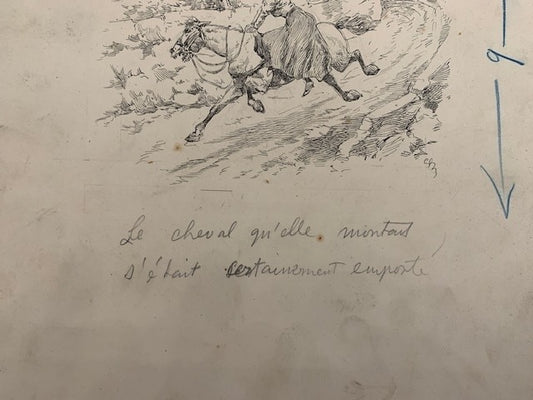 9
Le cheval qu'elle montait
s'était certainement emporté